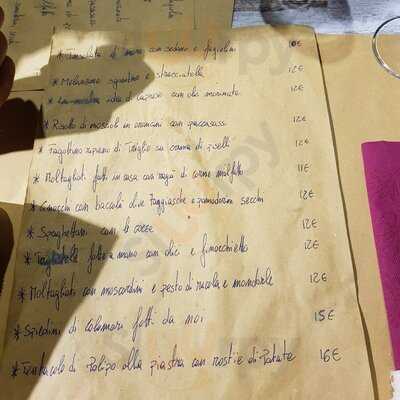 * Insalata di mare con sedano e fagiolini €
* Melanzane e stracciatella 12€
* con alici marinate 12€
* Risotto di moscioli in con paccasassi 12€
* Fagottino ripieno di Triglia su crema di piselli 12€
* Maltagliati fatti in casa con ragù di carne 11€
* Gnocchi con baccalà olive Taggiasche e pomodorini secchi 12€
* Spaghettoni con le cozze 12€
* Tagliatelle fatte a mano con alici e finocchietto 12€
* Maltagliati con moscardini e pesto di rucola e mandorle 12€
* Spiedini di calamari fatti da noi 15€
* Tentacolo di Polipo alla piastra con rostie di Patate 16€